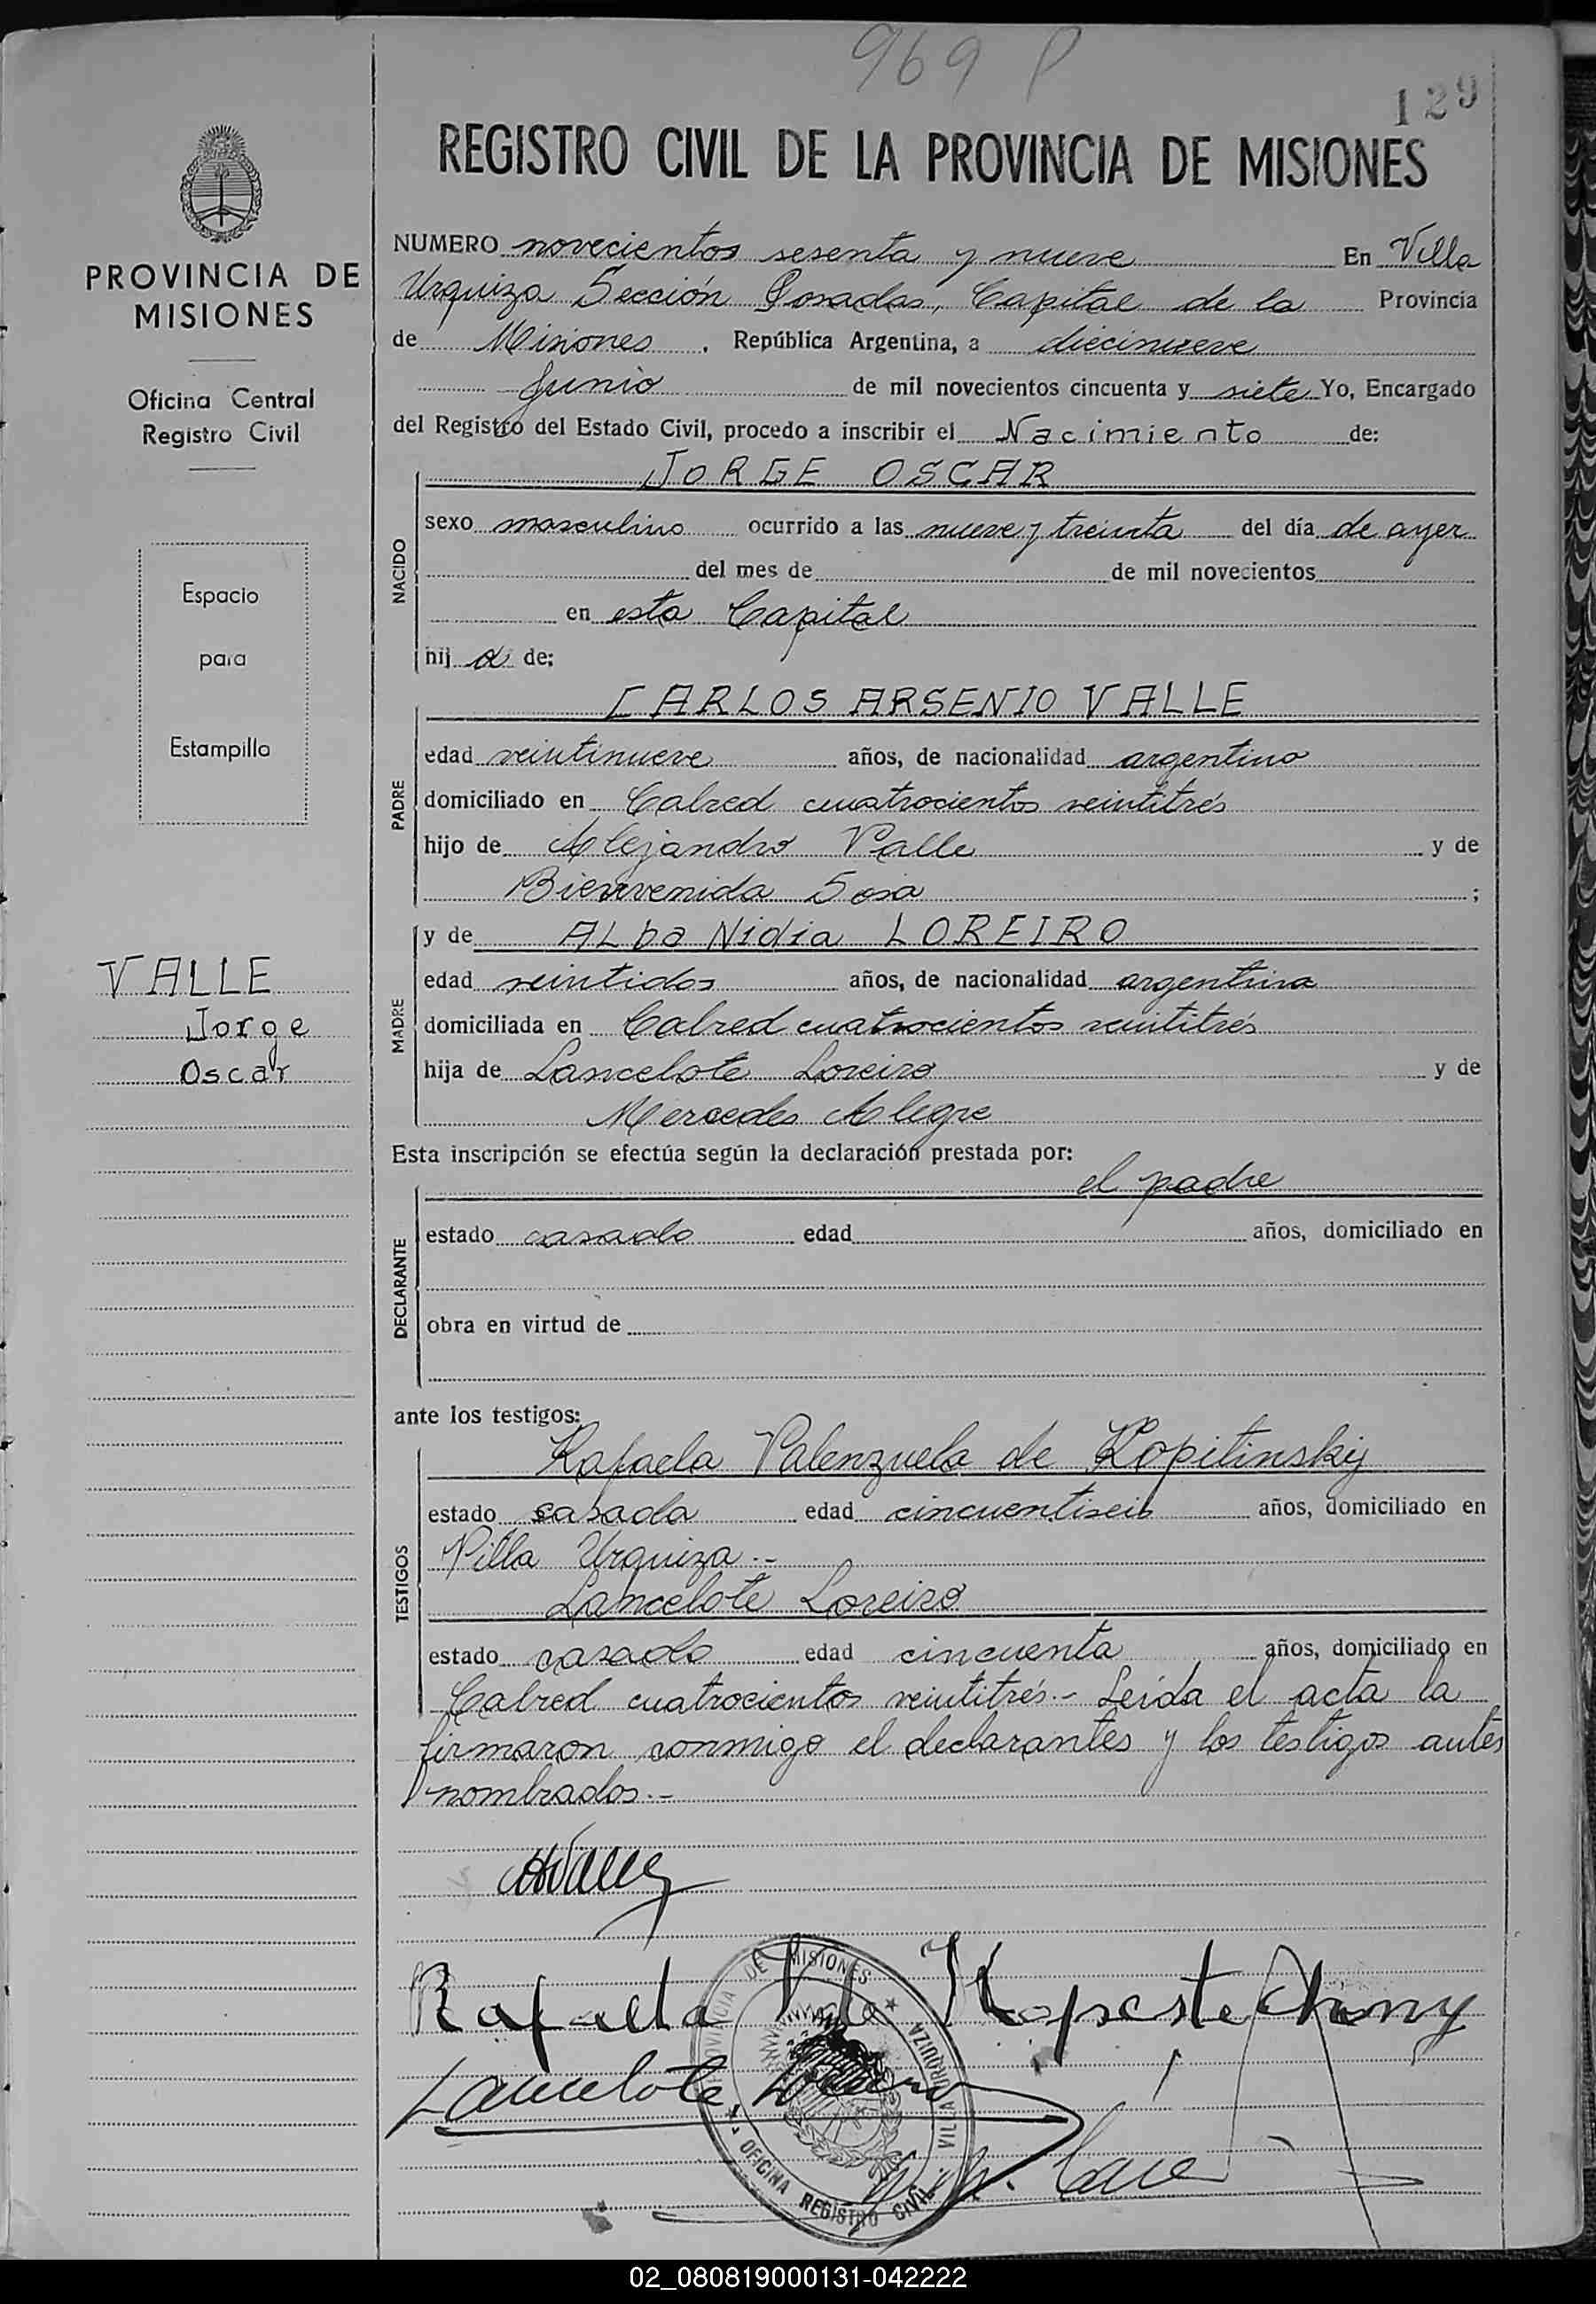 969 P
129
REGISTRO CIVIL DE LA PROVINCIA DE MISIONES
PROVINCIA DE
MISIONES
Oficina Central
Registro Civil
Espacio
para
Estampilla
VALLE
Jorge
Oscar
NUMERO novecientos sesenta y nueve En Villa
Urquiza Sección Posadas, Capital de la Provincia
de Misiones, República Argentina, a diecinueve
Junio de mil novecientos cincuenta y siete Yo, Encargado
del Registro del Estado Civil, procedo a inscribir el Nacimiento de:
JORGE OSCAR
NACIDO
sexo masculino ocurrido a las nueve y treinta del día de ayer
del mes de de mil novecientos
en esta Capital
hij o de:
CARLOS ARSENIO VALLE
PADRE
edad veintinueve años, de nacionalidad argentino
domiciliado en Cabred cuatrocientos veintitrés
hijo de Alejandro Valle y de
Bienvenida Sosa ;
MADRE
y de ALba Nidia LOREIRO
edad veintidos años, de nacionalidad argentina
domiciliada en Cabred cuatrocientos veintitrés
hija de Lancelote Loreiro y de
Mercedes Alegre
Esta inscripción se efectúa según la declaración prestada por:
el padre
DECLARANTE
estado casado edad años, domiciliado en
obra en virtud de
ante los testigos:
Rafaela Valenzuela de Kopitinskij
TESTIGOS
estado casada edad cincuentiseis años, domiciliado en
Villa Urquiza.-
Lancelote Loreiro
estado casado edad cincuenta años, domiciliado en
Cabred cuatrocientos veintitrés.- Leída el acta la
firmaron conmigo el declarantes y los testigos antes
nombrados.-
Rafaela V de
Lancelote Loreiro
PROVINCIA DE MISIONES
VILLA URQUIZA
OFICINA REGISTRO CIVIL
02_080819000131-042222